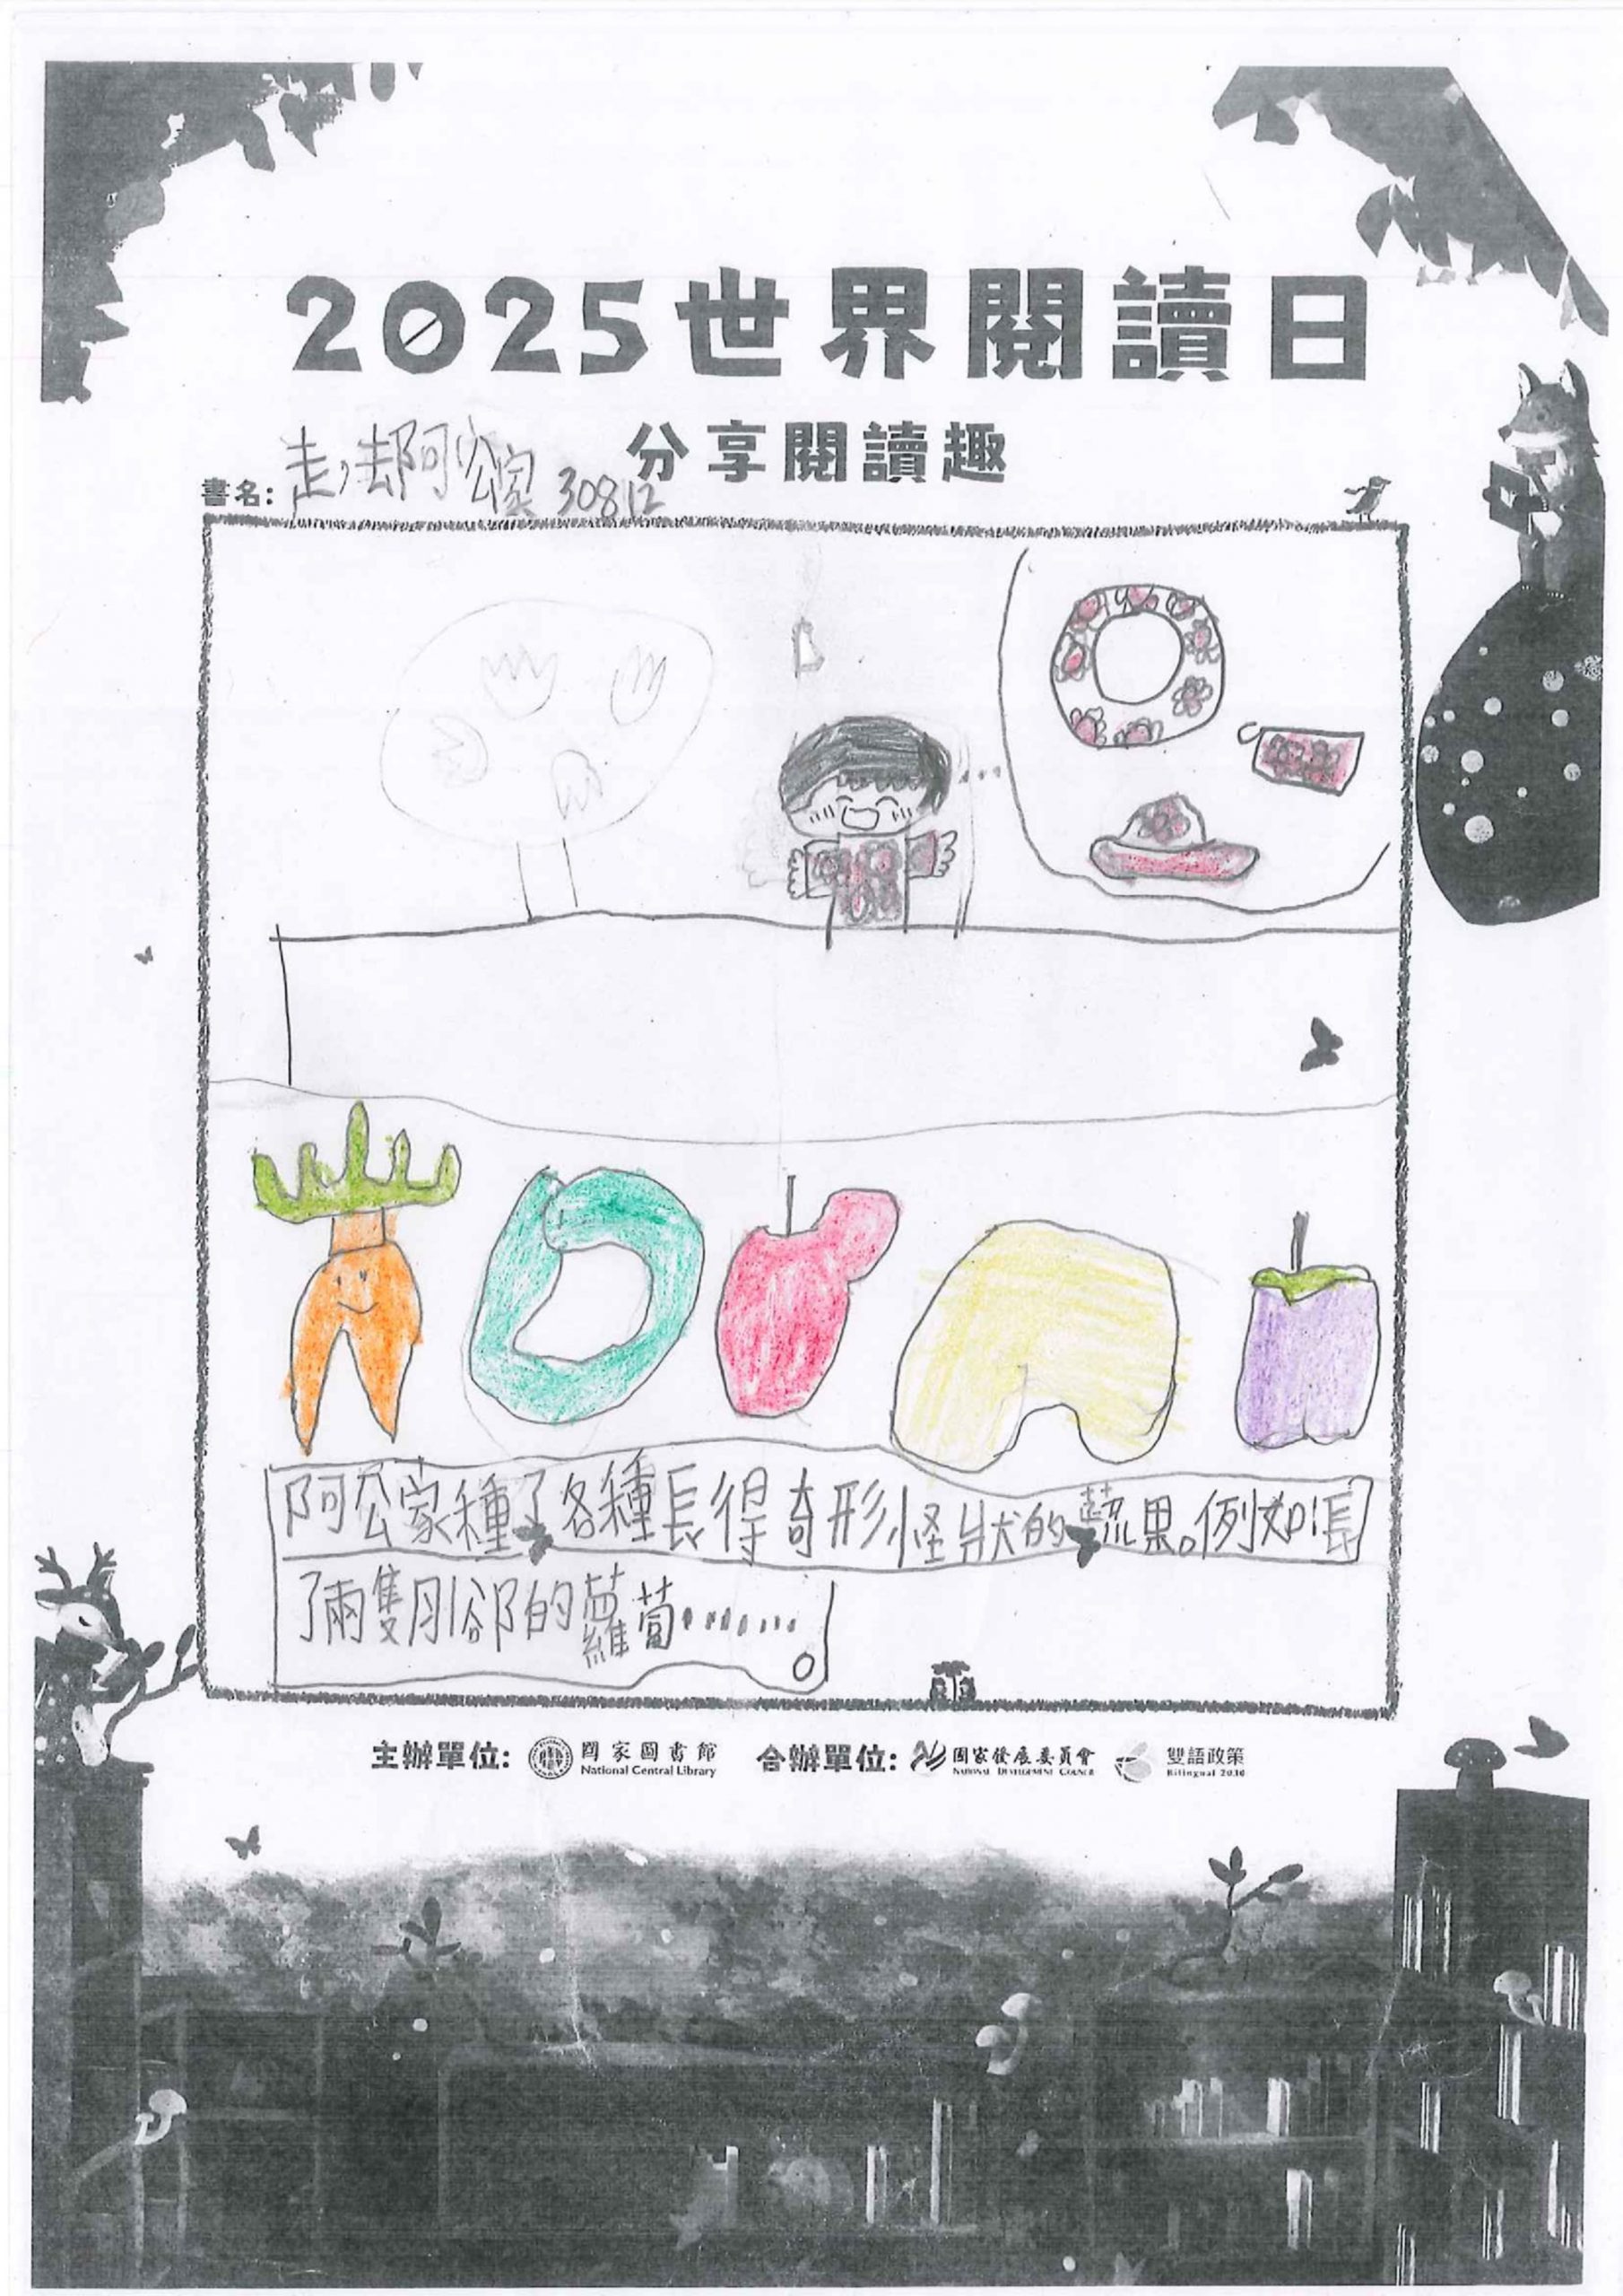 2025世界閱讀日
分享閱讀趣
書名: 走,去阿公家 30812
阿公家種了各種長得奇形怪狀的蔬果。例如:長
了兩隻腳的蘿蔔………。
主辦單位: 國家圖書館 National Central Library 合辦單位: 國家發展委員會 National Development Council 雙語政策 Bilingual 2030